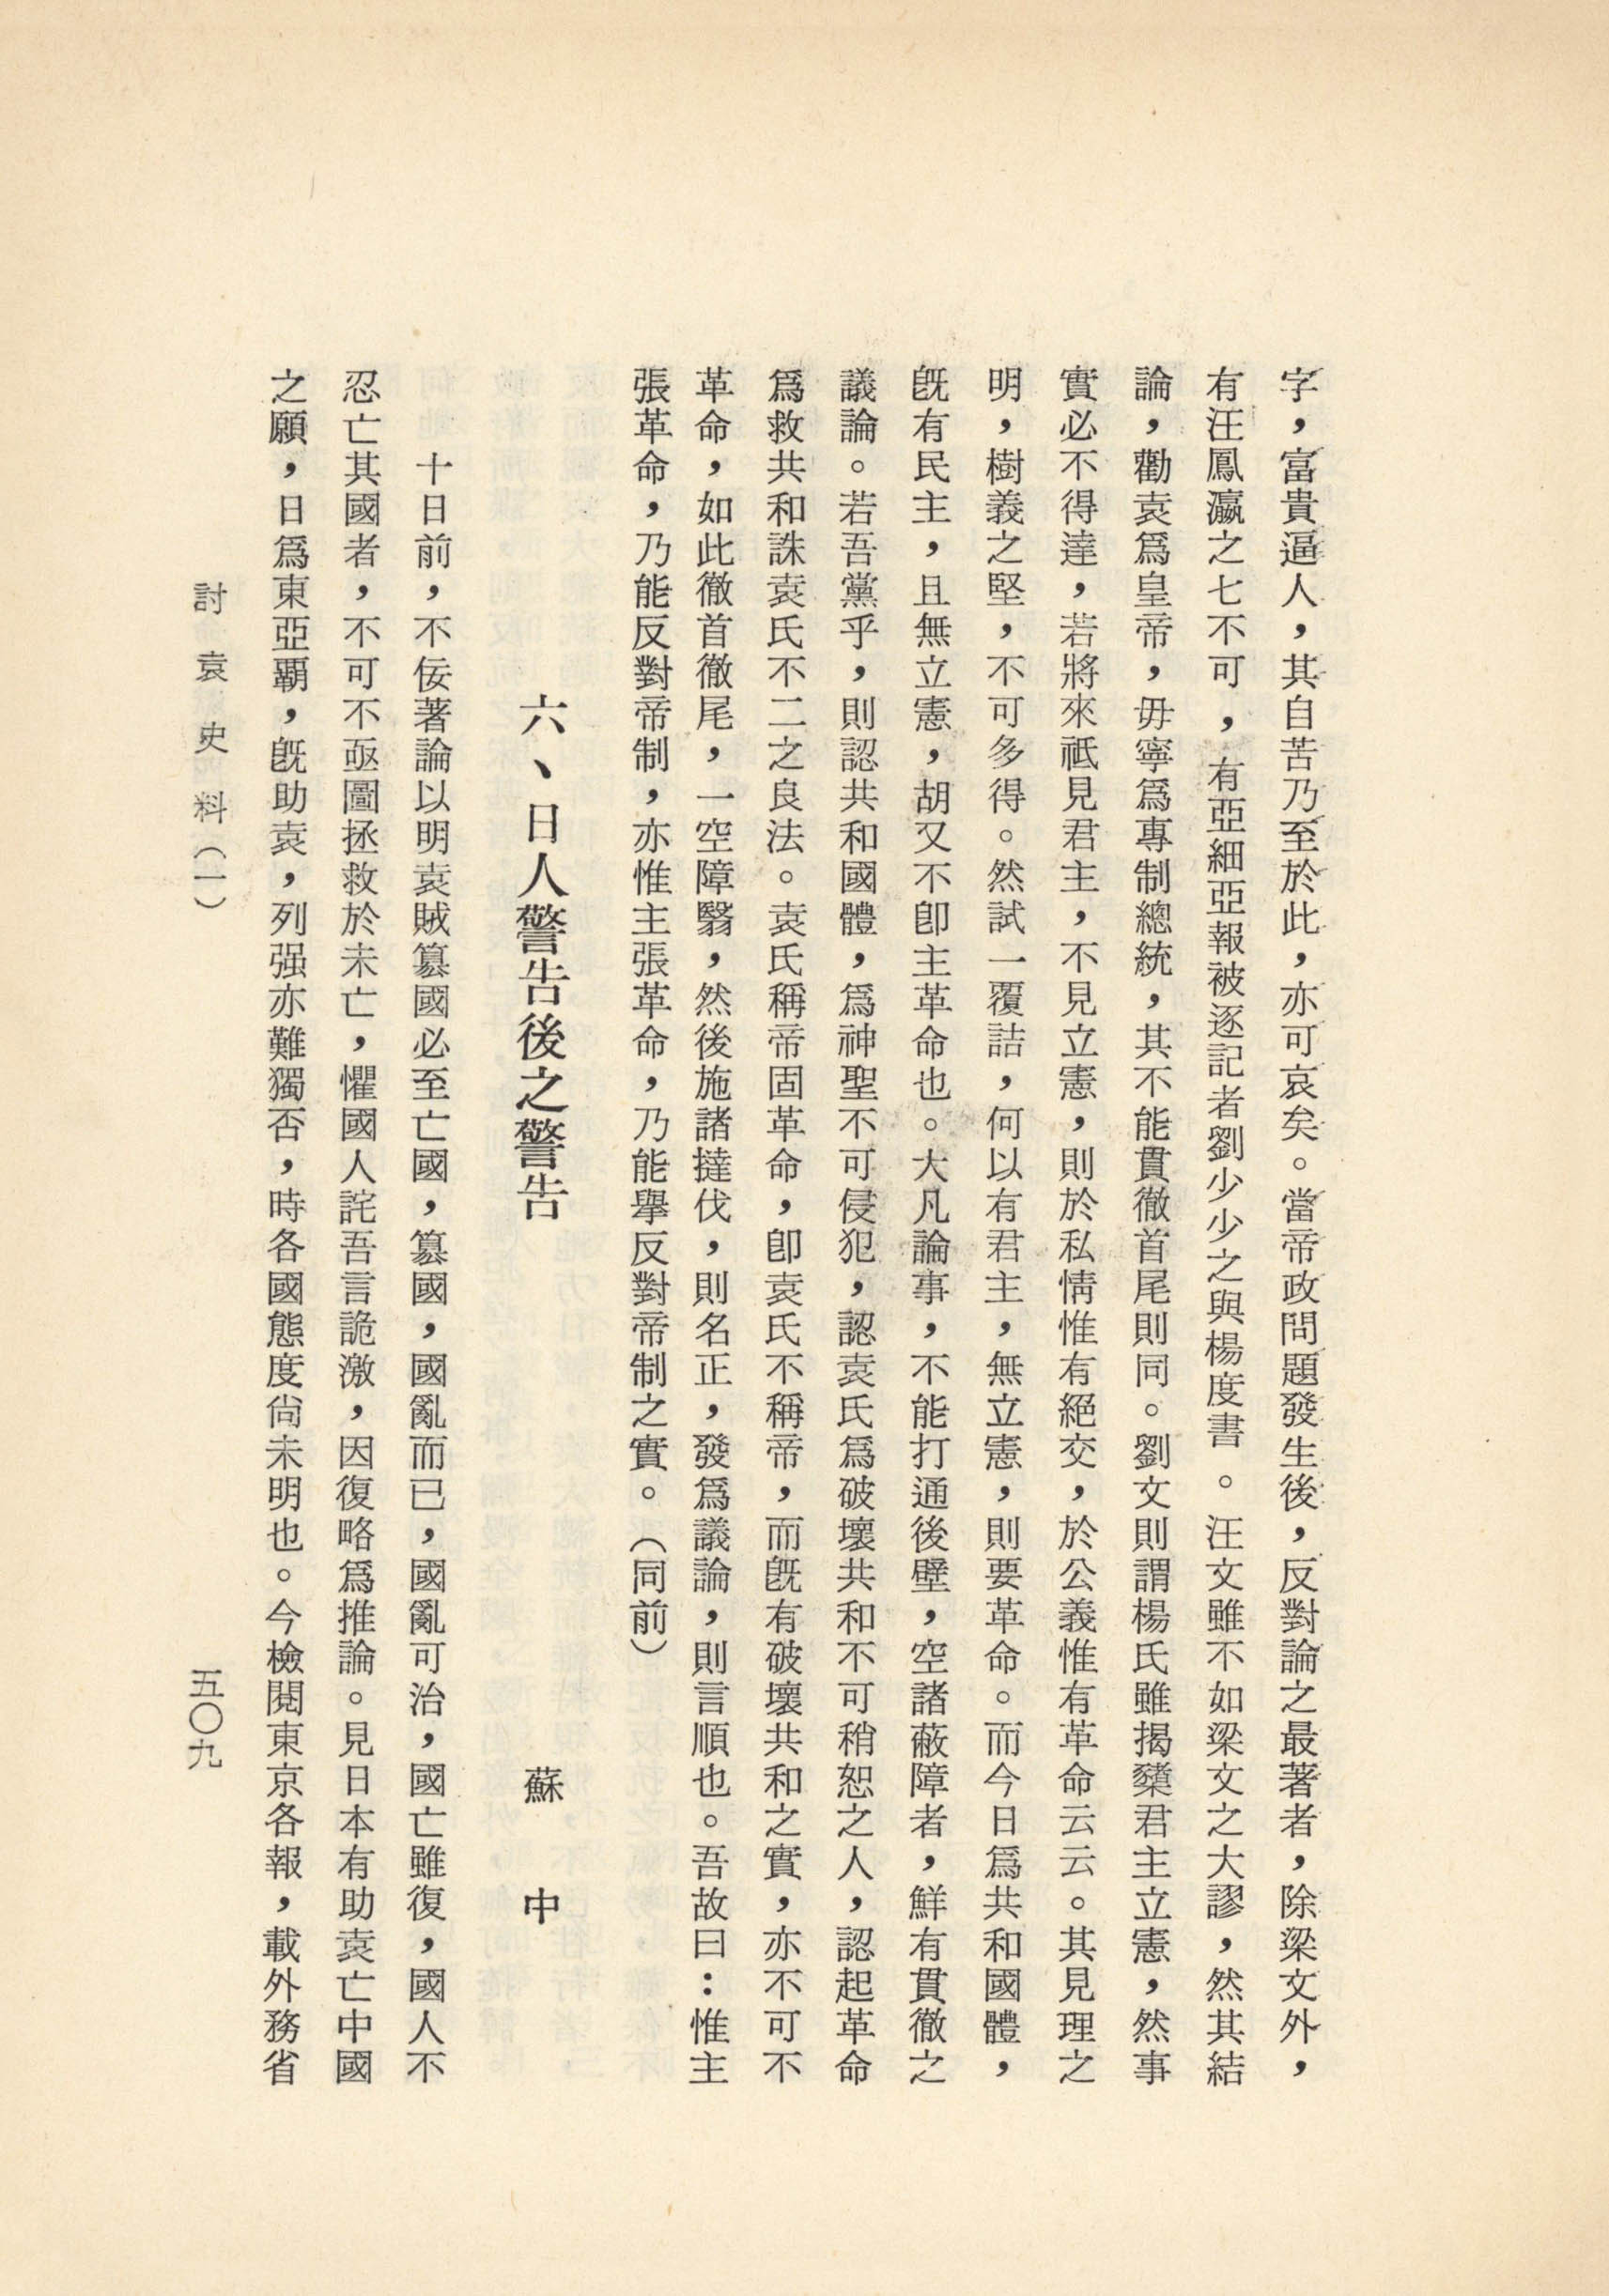 字，富貴逼人，其自苦乃至於此，亦可哀矣。當帝政問題發生後，反對論之最著者，除梁文外，
有汪鳳瀛之七不可，有亞細亞報被逐記者劉少少之與楊度書。汪文雖不如梁文之大謬，然其結
論，勸袁爲皇帝，毋寧爲專制總統，其不能貫徹首尾則同。劉文則謂楊氏雖揭櫫君主立憲，然事
實必不得達，若將來祇見君主，不見立憲，則於私情惟有絕交，於公義惟有革命云云。其見理之
明，樹義之堅，不可多得。然試一覆詰，何以有君主，無立憲，則要革命。而今日爲共和國體，
既有民主，且無立憲，胡又不卽主革命也。大凡論事，不能打通後壁，空諸蔽障者，鮮有貫徹之
議論。若吾黨乎，則認共和國體，爲神聖不可侵犯，認袁氏爲破壞共和不可稍恕之人，認起革命
爲救共和誅袁氏不二之良法。袁氏稱帝固革命，卽袁氏不稱帝，而既有破壞共和之實，亦不可不
革命，如此徹首徹尾，一空障翳，然後施諸撻伐，則名正，發爲議論，則言順也。吾故曰：惟主
張革命，乃能反對帝制，亦惟主張革命，乃能舉反對帝制之實。（同前）
六、日人警告後之警告
蘇中
十日前，不佞著論以明袁賊篡國必至亡國，篡國，國亂而已，國亂可治，國亡雖復，國人不
忍亡其國者，不可不亟圖拯救於未亡，懼國人詫吾言詭激，因復略爲推論。見日本有助袁亡中國
之願，日爲東亞覇，既助袁，列强亦難獨否，時各國態度尚未明也。今檢閱東京各報，載外務省
討袁史料（一）
五〇九